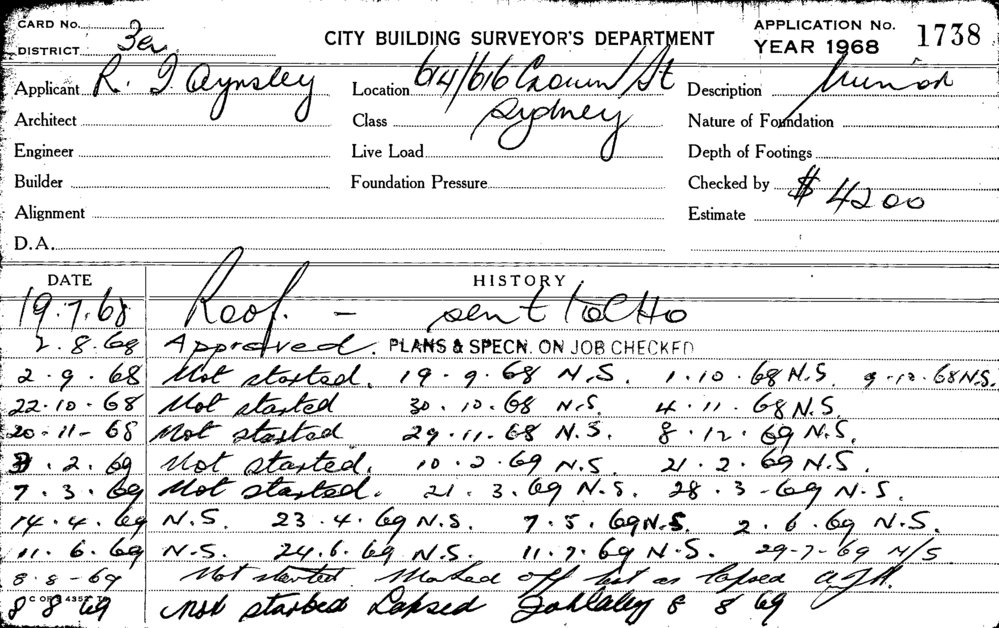 CARD No. APPLICATION No. 1738
DISTRICT 3a CITY BUILDING SURVEYOR'S DEPARTMENT YEAR 1968
Applicant R. J. Aynsley Location 614/616 Crown St Description
Architect Class Sydney Nature of Foundation
Engineer Live Load Depth of Footings
Builder Foundation Pressure Checked by $ 4200
Alignment Estimate
D.A.
DATE HISTORY
19.7.68 Roof. - sent to CHO
2.8.68 Approved. PLANS & SPECN. ON JOB CHECKED
2.9.68 Not started. 19.9.68 N.S. 1.10.68 N.S. 9.10.68 N.S.
22.10.68 Not started 30.10.68 N.S. 4.11.68 N.S.
20-11-68 Not started 29.11.68 N.S. 8.12.69 N.S.
.2.69 Not started. 10.2.69 N.S. 21.2.69 N.S.
7.3.69 Not started. 21.3.69 N.S. 28.3-69 N.S.
14.4.69 N.S. 23.4.69 N.S. 7.5.69 N.S. 2.6.69 N.S.
11.6.69 N.S. 24.6.69 N.S. 11.7.69 N.S. 29-7-69 N/S
8.8-69 Not started. Marked off list as lapsed
8 8 69 Not started Lapsed 8 8 69